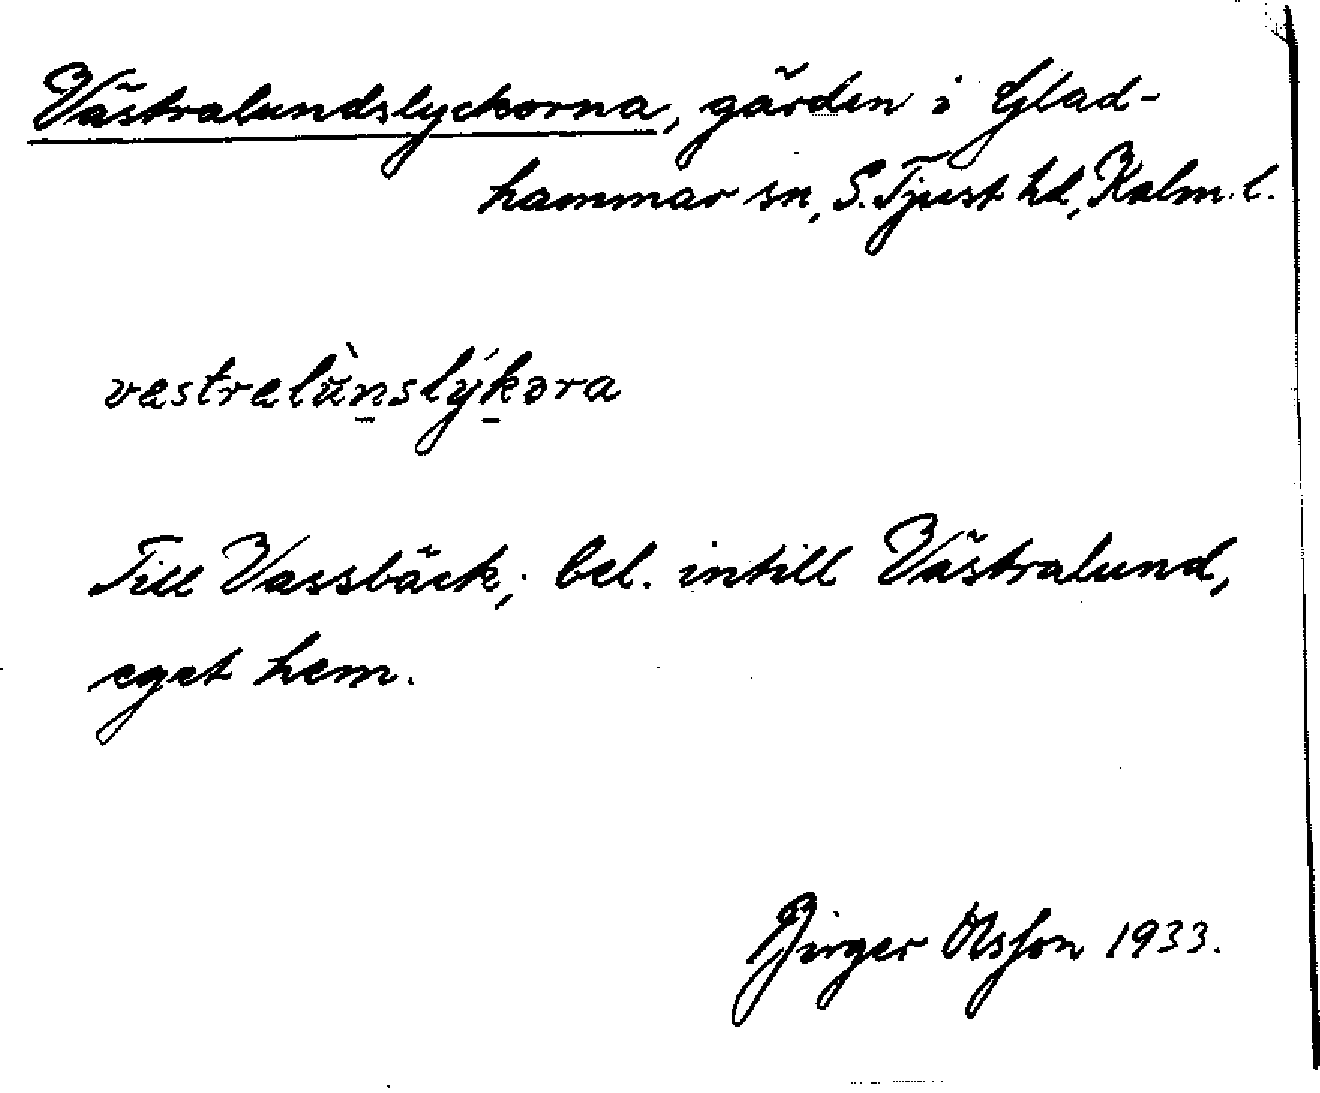 Västralundslyckorna, gården i Glad-
hammar sn, S. Tjust hd, Kalm. l.
væstrælùn̠slýk̠ɘra
Till Vassbäck; bel. intill Västralund,
eget hem.
Birger Olsson 1933.